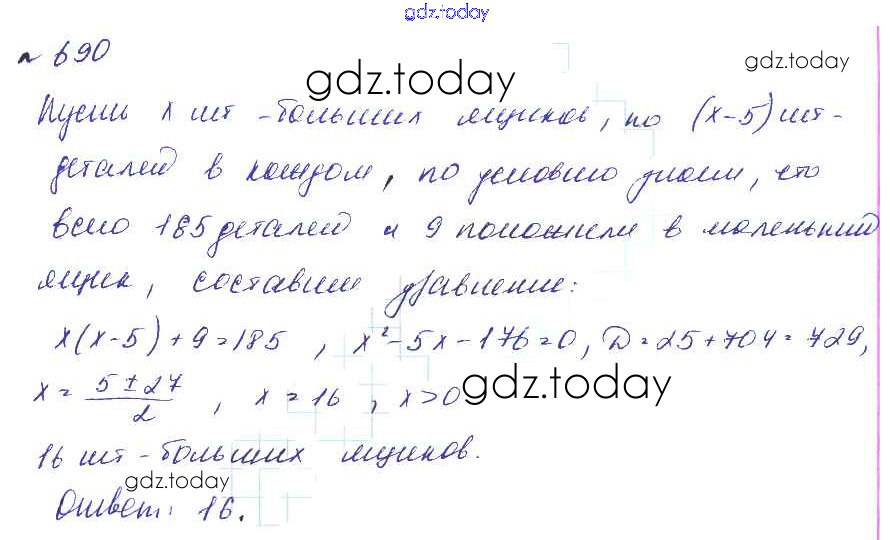 gdz.today
№ 690
gdz.today
gdz.today
Пусть x шт - больших ящиков, по (x-5) шт -
деталей в каждом, по условию знаем, что
всего 185 деталей и 9 положили в маленький
ящик, составим уравнение:
x(x-5)+9=185, x²-5x-176=0, D=25+704=729,
x = (5±27)/2, x=16, x>0
gdz.today
16 шт - больших ящиков.
gdz.today
Ответ: 16.
gdz.today